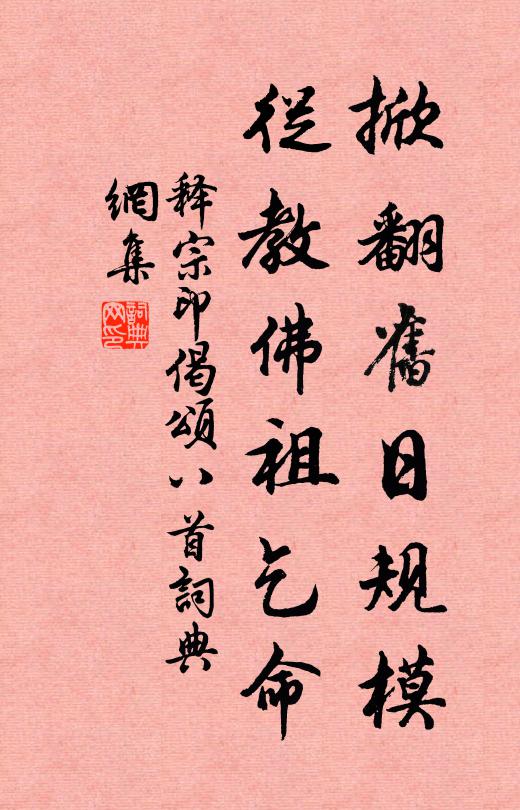 掀翻舊日規模
從教佛祖乞命
释宗印偈頌八首詞典
網集
詞典
网印